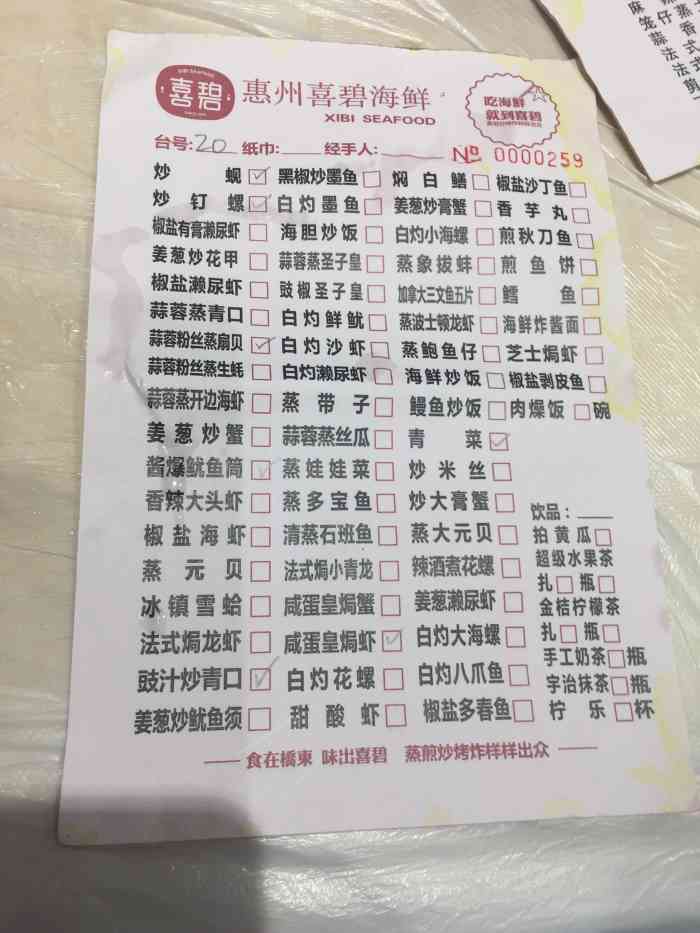 喜碧
惠州喜碧海鲜
XIBI SEAFOOD
吃海鲜
就到喜碧
台号:20 纸巾:____ 经手人:____ № 0000259
炒蚬☑ 黑椒炒墨鱼□ 焖白鳝□ 椒盐沙丁鱼□
炒钉螺☑ 白灼墨鱼□ 姜葱炒膏蟹□ 香芋丸□
椒盐有膏濑尿虾□ 海胆炒饭□ 白灼小海螺□ 煎秋刀鱼□
姜葱炒花甲□ 蒜蓉蒸圣子皇□ 蒸象拔蚌□ 煎鱼饼□
椒盐濑尿虾□ 豉椒圣子皇□ 加拿大三文鱼五片□ 鳕鱼□
蒜蓉蒸青口□ 白灼鲜鱿□ 蒸波士顿龙虾□ 海鲜炸酱面□
蒜蓉粉丝蒸扇贝☑ 白灼沙虾□ 蒸鲍鱼仔□ 芝士焗虾□
蒜蓉粉丝蒸生蚝□ 白灼濑尿虾□ 海鲜炒饭□ 椒盐剥皮鱼□
蒜蓉蒸开边海虾□ 蒸带子□ 鳗鱼炒饭□ 肉燥饭□碗
姜葱炒蟹□ 蒜蓉蒸丝瓜□ 青菜☑
酱爆鱿鱼筒☑ 蒸娃娃菜□ 炒米丝□
香辣大头虾□ 蒸多宝鱼□ 炒大膏蟹□
椒盐海虾□ 清蒸石班鱼□ 蒸大元贝□
蒸元贝□ 法式焗小青龙□ 辣酒煮花螺□
冰镇雪蛤□ 咸蛋皇焗蟹□ 姜葱濑尿虾□
法式焗龙虾□ 咸蛋皇焗虾☑ 白灼大海螺□
豉汁炒青口☑ 白灼花螺□ 白灼八爪鱼□
姜葱炒鱿鱼须□ 甜酸虾□ 椒盐多春鱼□
饮品:____
拍黄瓜□
超级水果茶
扎□瓶□
金桔柠檬茶
扎□瓶□
手工奶茶□瓶
宇治抹茶□瓶
柠乐□杯
食在橋東 味出喜碧 蒸煎炒烤炸样样出众